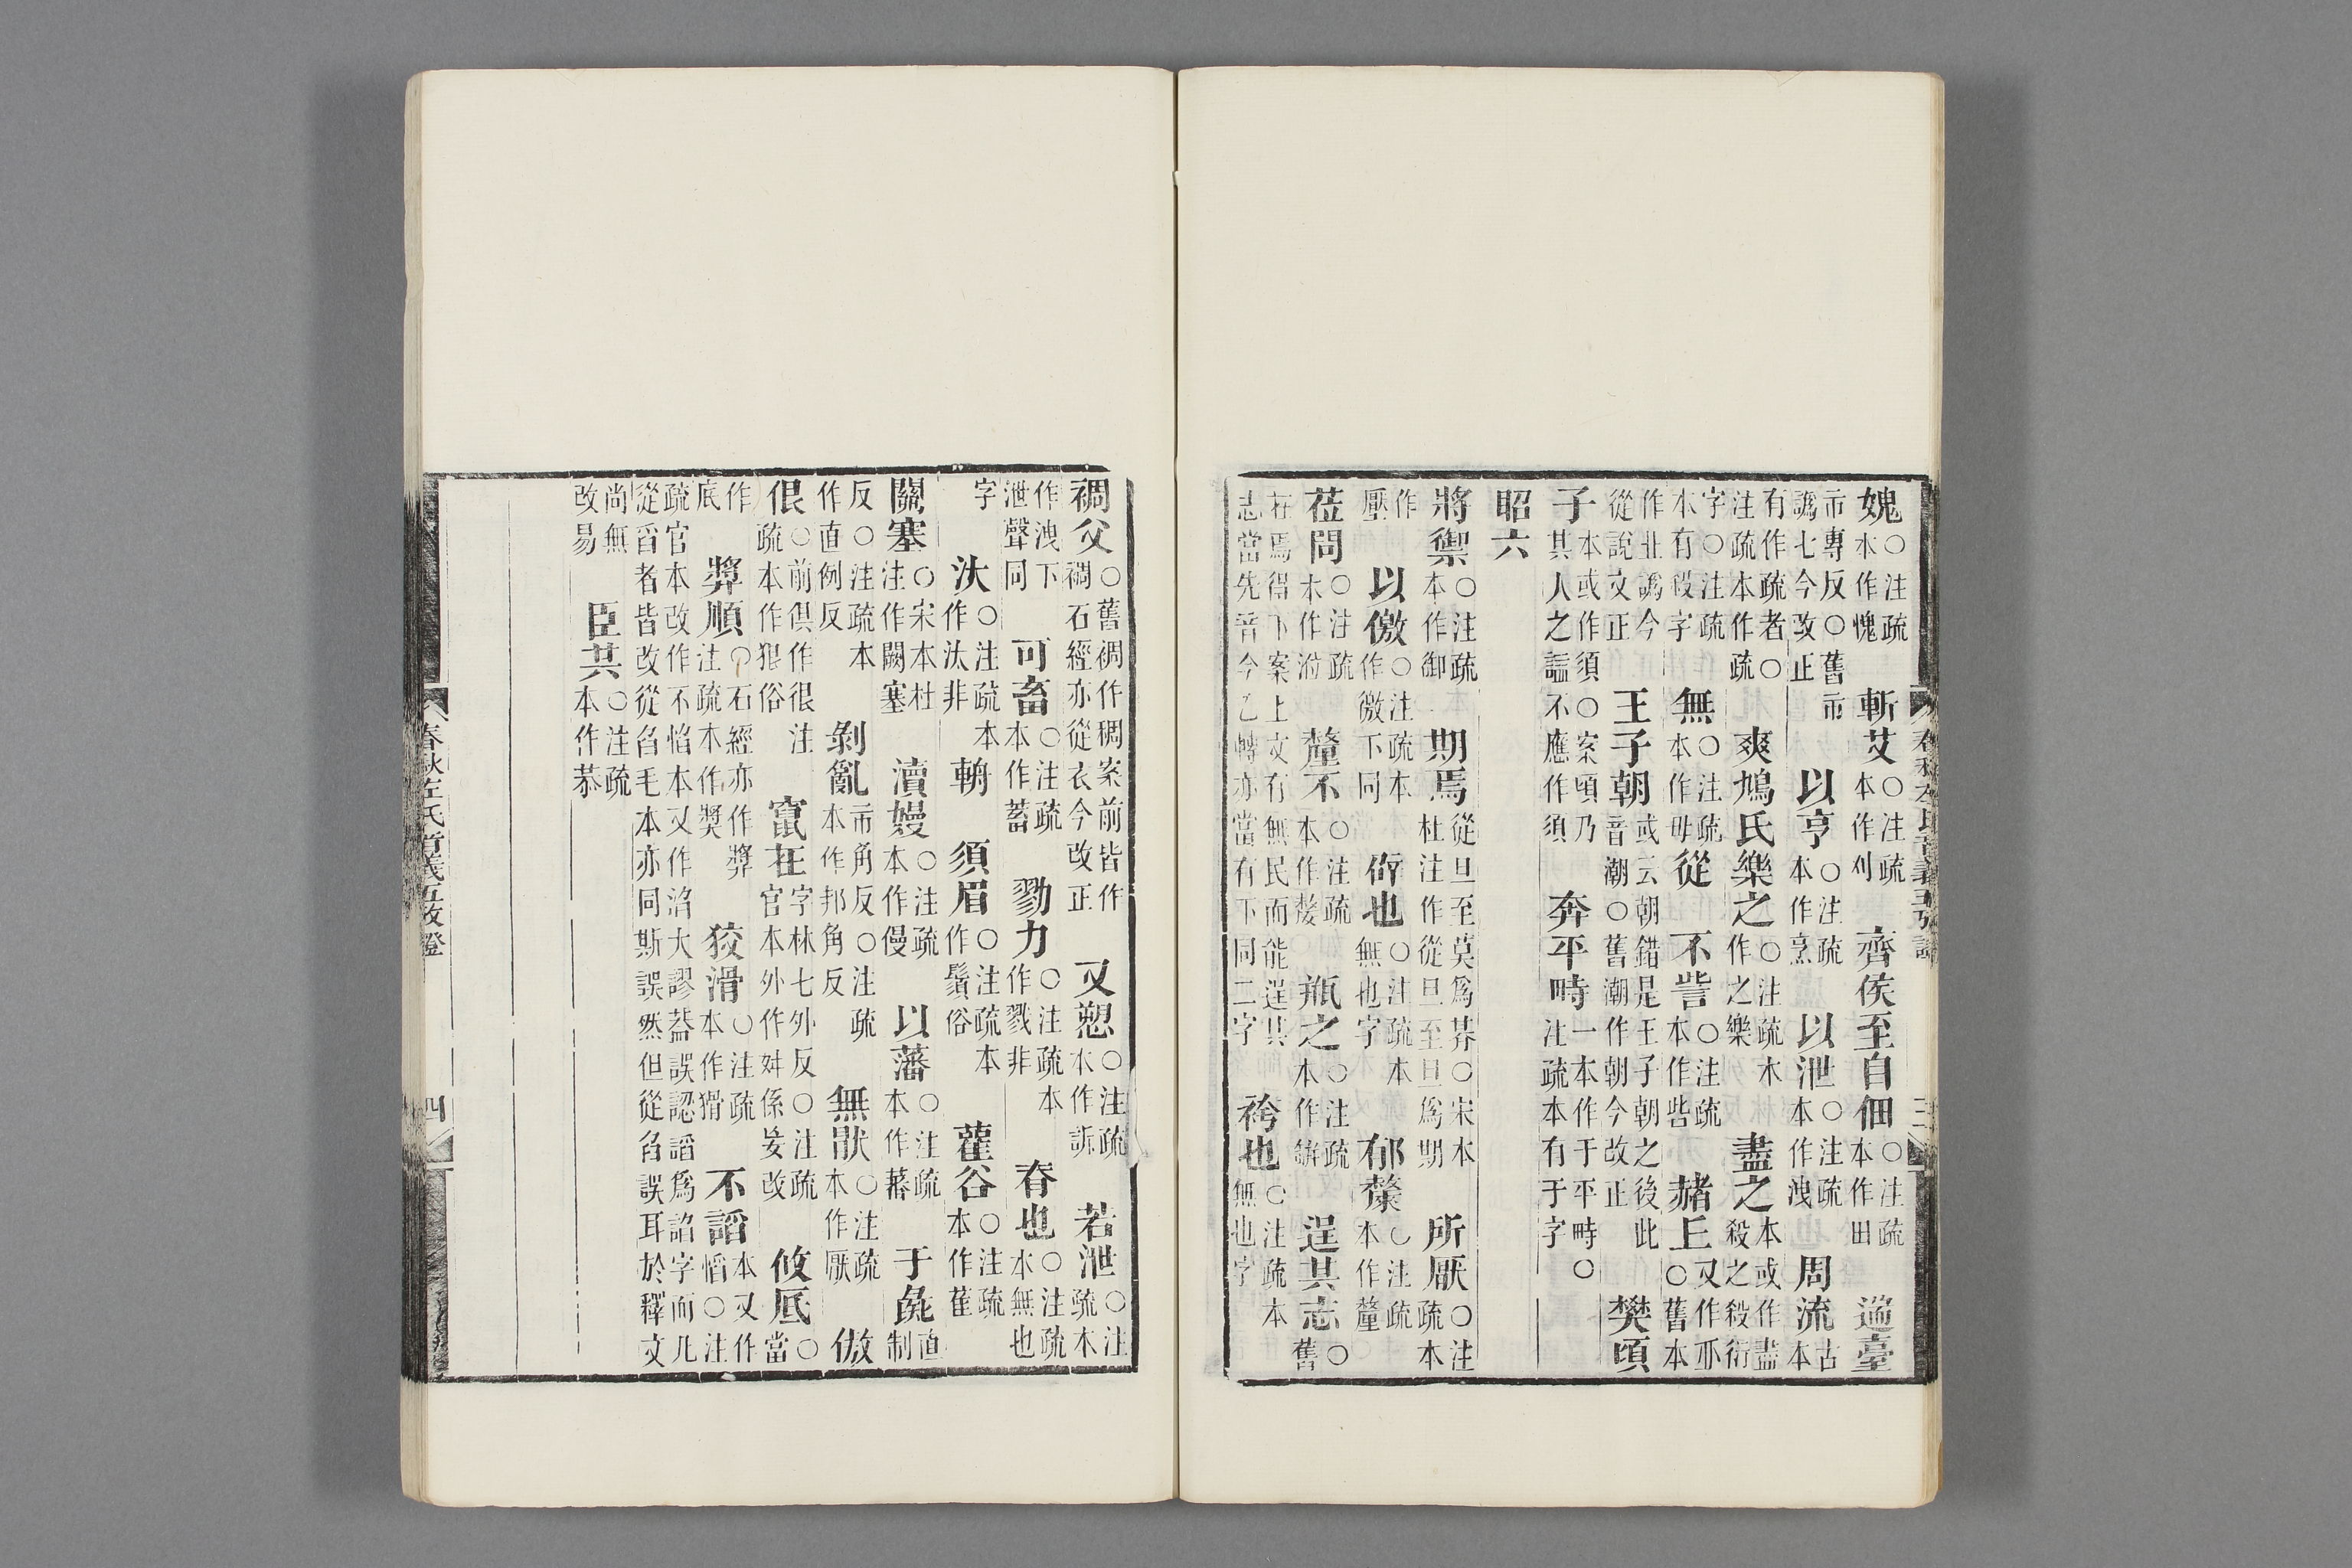 媿○注疏本作愧　斬艾○注疏本作刈　齊侯至自佃○注疏本作田　遄臺
市專反○舊市譌七今改正　以亨○注疏本作烹　以泄○注疏本作洩　周流古本
有作疏者○注疏本作疏　爽鳩氏樂之○注疏本作之樂　盡之本或作盡殺之殺衍
字○注疏本有殺字　無○注疏本作毋從　不訾○注疏本作呰　赭上又作丌○舊本
作丠譌今從說文正　王子朝或云朝錯是王子朝之後此音潮○舊潮作朝今改正　樊頃
子本或作須○案頃乃其人之諡不應作須　奔平畤一本作于平畤○注疏本有于字
昭六
將禦○注疏本作御　期焉從旦至莫爲朞○宋本杜注作從旦至旦爲期　所厭○注疏本
作壓　以儌○注疏本作徼下同　侟也○注疏本無也字　郁犛○注疏本作釐
莅問○注疏本作涖　釐不○注疏本作嫠　瓶之○注疏本作缾　逞其志○舊
在焉得下案上文有無民而能逞其志當先音今乙轉亦當有下同二字　袴也○注疏本無也字
裯父○舊裯作稠案前皆作裯石經亦從衣今改正　又愬○注疏本作訴　若泄○注疏本
作洩下泄聲同　可畜○注疏本作蓄　勠力○注疏本作戮非　脊也○注疏本無也
字　汏○注疏本作汰非　輈　須眉○注疏本作鬚俗　雚谷○注疏本作萑
關塞○宋本杜注作闕塞　瀆嫚○注疏本作慢　以藩○注疏本作蕃　于彘直制
反○注疏本作直例反　剝亂市角反○注疏本作邦角反　無猒○注疏本作厭　倣
佷○前俱作很注疏本作狠俗　竄在字林七外反○注疏官本外作舛係妄改　攸厎○當
作底　奬順○石經亦作奬注疏本作獎　狡滑○注疏本作猾　不謟本又作慆○注
疏官本改作不慆本又作滔大謬葢誤認謟爲諂字而凡從舀者皆改從臽毛本亦同斯誤然但從臽誤耳於釋文
尚無改易　臣共○注疏本作恭
春秋左氏音義五攷證
三
四